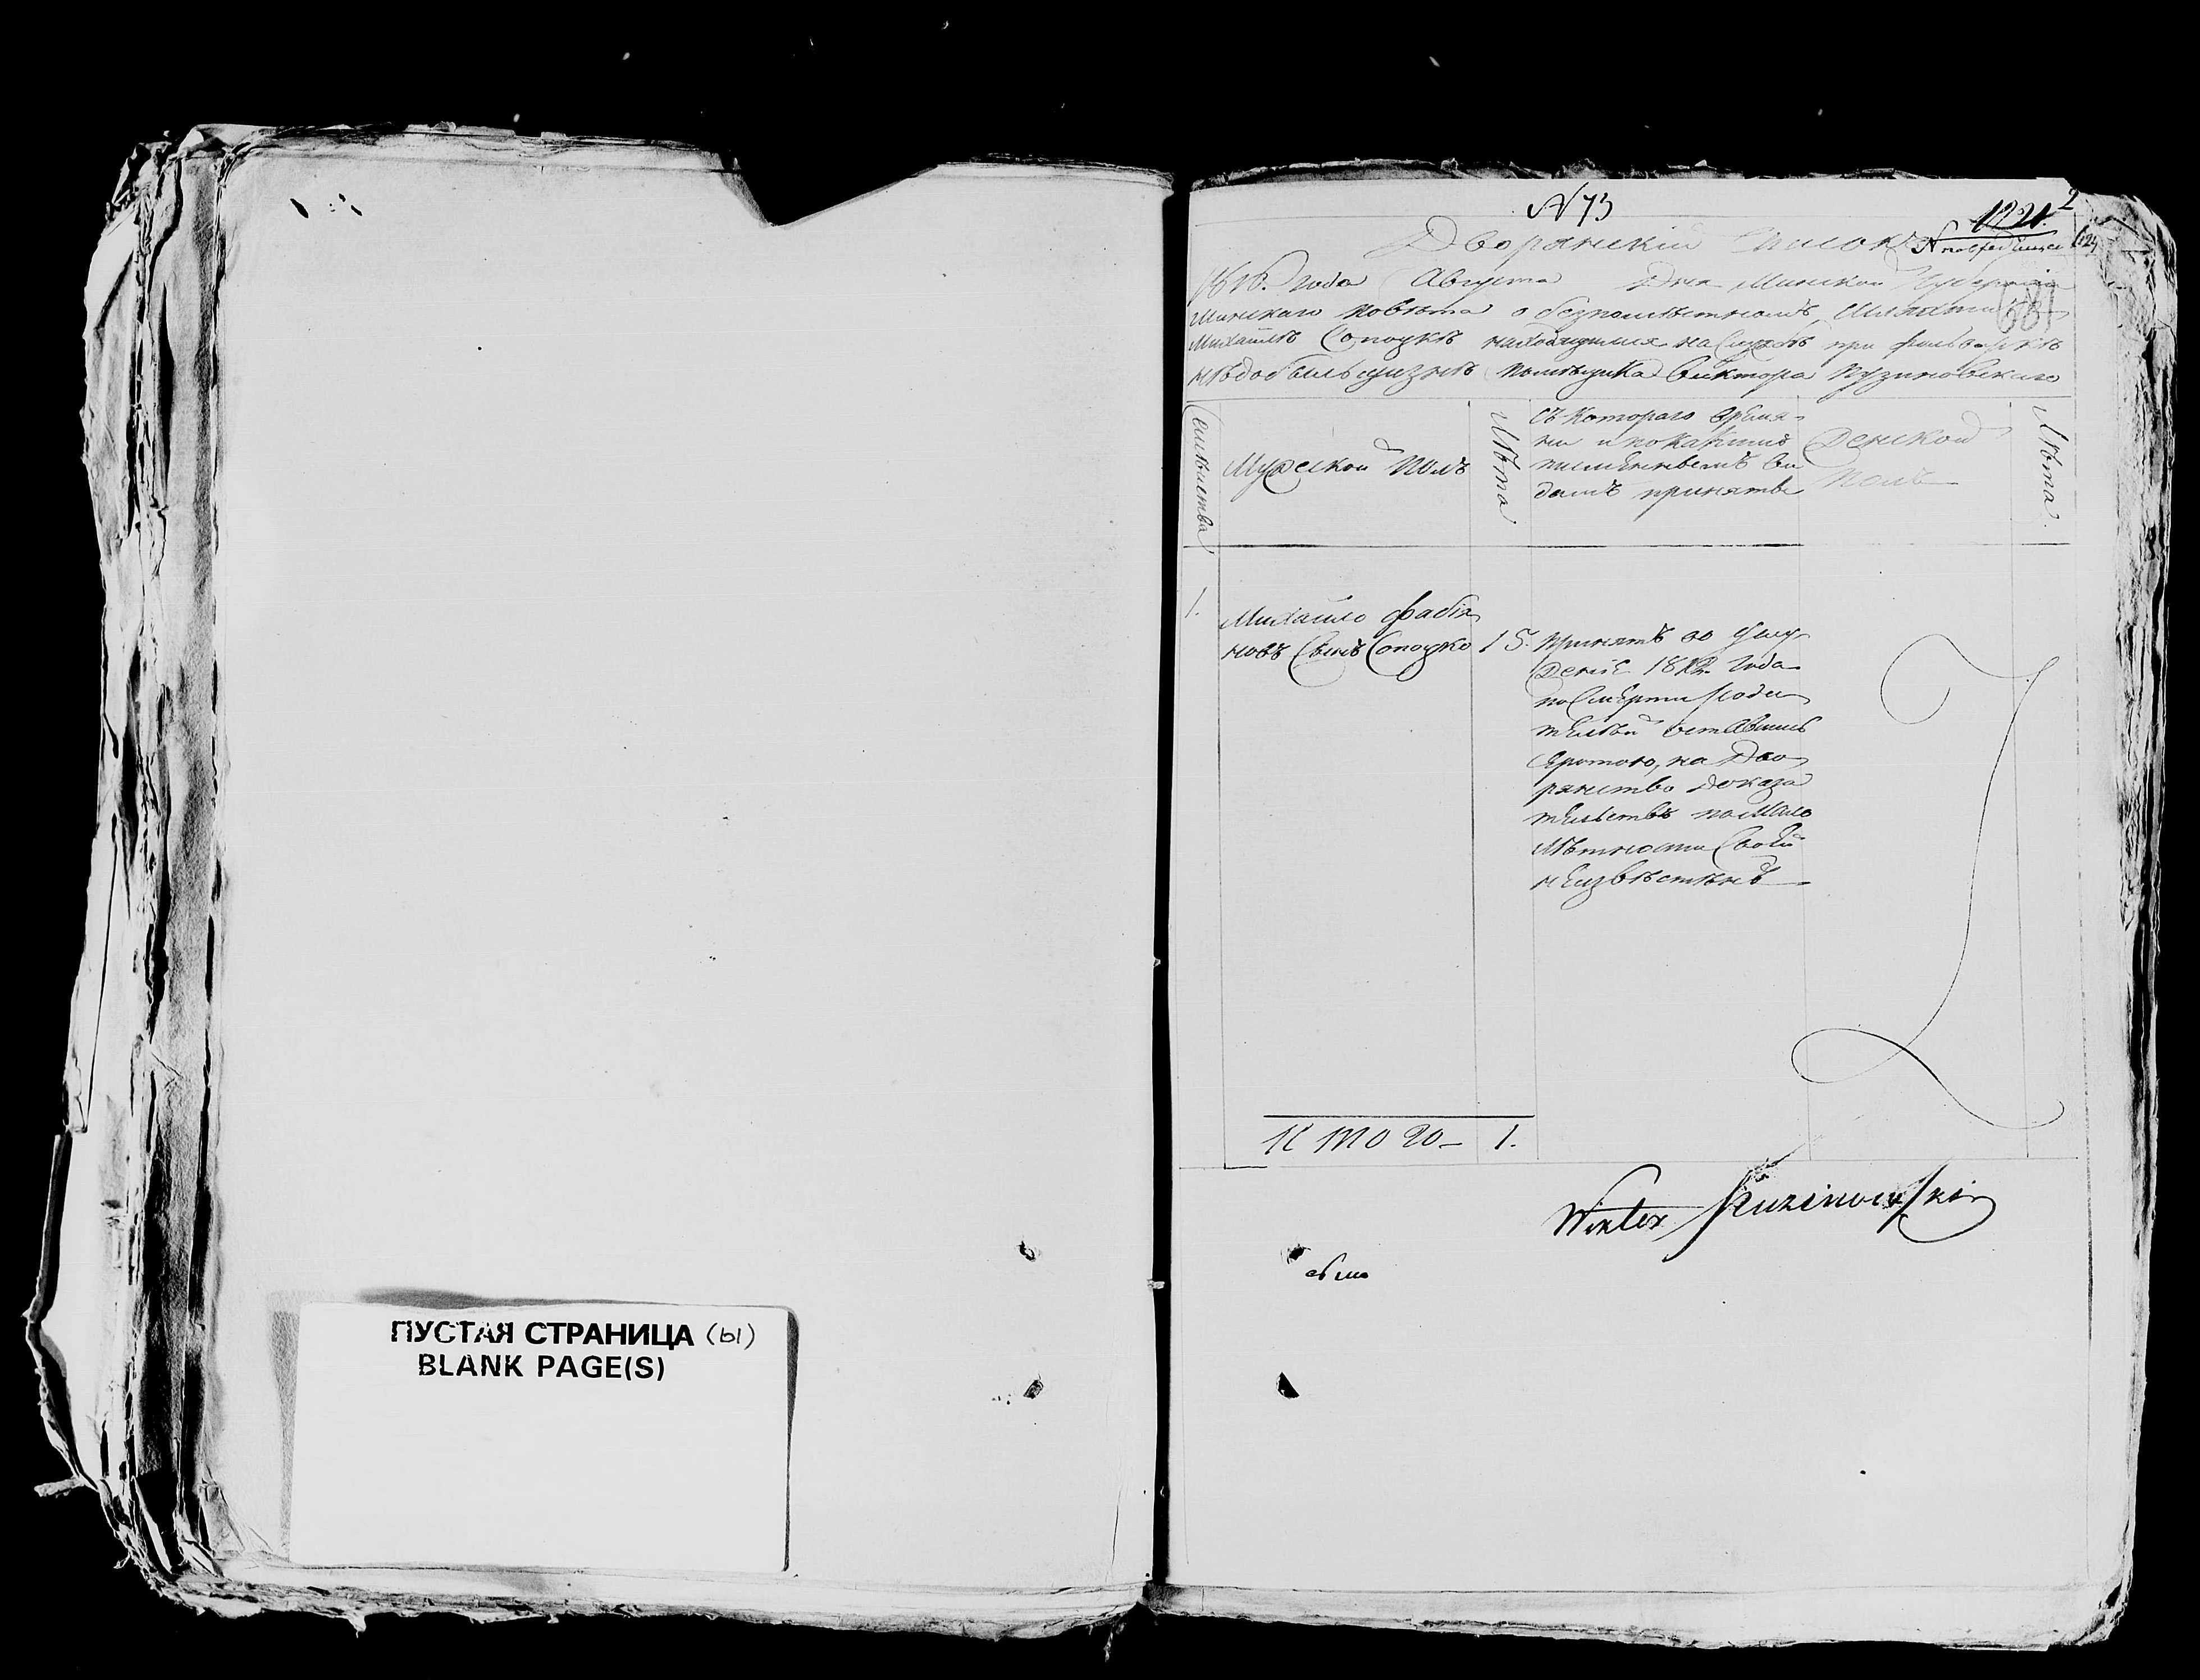 ПУСТАЯ СТРАНИЦА (ы)
BLANK PAGE(S)
N 73
1221. 2
Дворянскій Список
1816. года Августа Дня Минской Губерніи
Минскаго повѣта о безпомѣстномъ Шляхти
Михайлѣ Сопоцкѣ находящимся на Службѣ при фольваркѣ
помѣщика Виктора Пузиновскаго
Мужеской Полъ
Лѣта
Съ Котораго Время-
ни и по какимъ
писменнымъ Ви
дамъ приняты
Женской
Полъ
Лѣта.
1.
Михайло Фабія
новъ Сынъ Соноцко 15.
принятъ во Услу
женіе 1812. Года
по Смерти Роди
телѣй оставшись
Сиротою, на Дво
рянство доказа
тельствъ по Мало
лѣтности Своей
неизвѣстенъ
Итого 1.
Wiktor Puzinowski